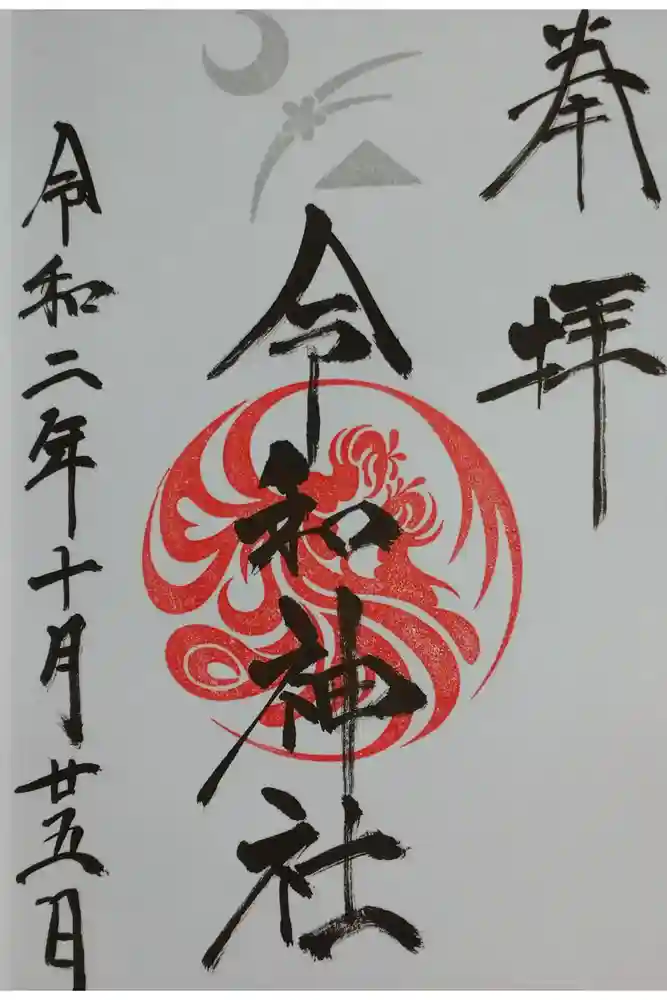 奉拝
令和神社
令和二年十月廿五日